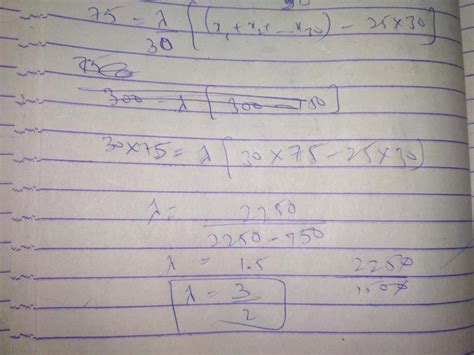 75 = λ/30 [(x₁+x₂+...x₃₀) - 25×30]
300 = λ [300 - 750]
30×75 = λ [30×75-25×30]
λ = 2250/2250-750
λ = 1.5 2250/1500
λ = 3/2